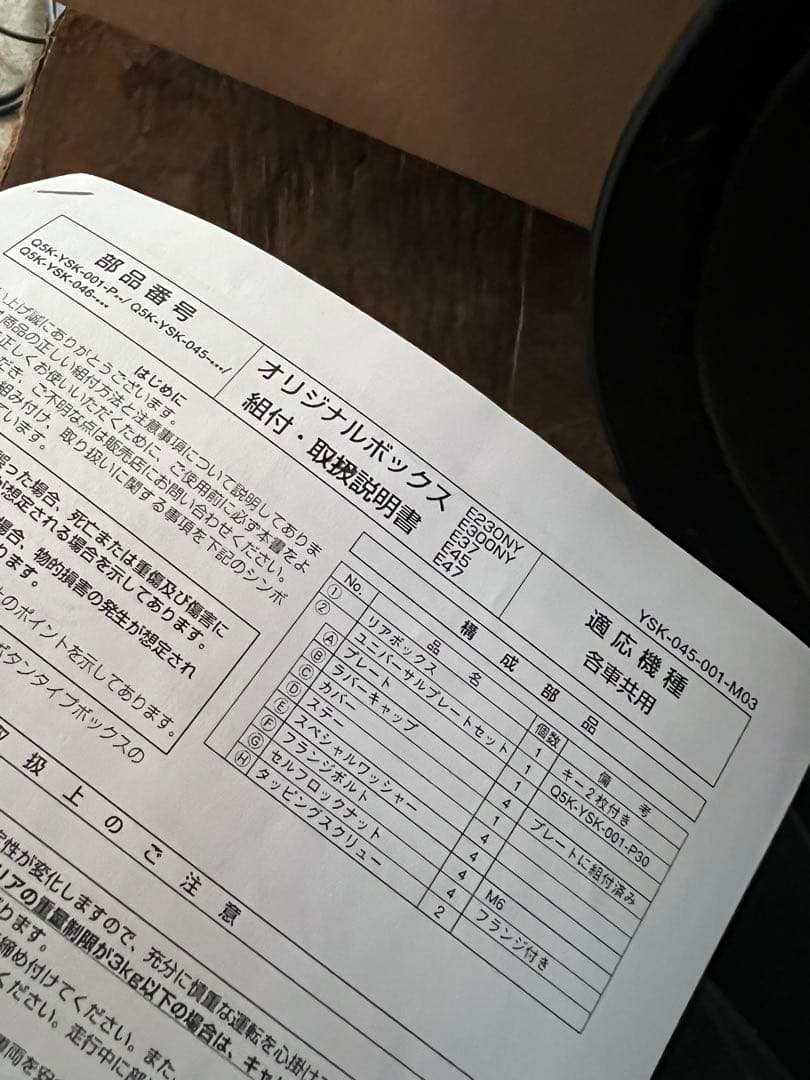 部品番号
Q5K-YSK-001-P**/ Q5K-YSK-045-***/
Q5K-YSK-046-***
オリジナルボックス
組付・取扱説明書
E230NY
E300NY
E37
E45
E47
YSK-045-001-M03
適応機種
各車共用
はじめに
い上げ誠にありがとうございます。
商品の正しい組付方法と注意事項について説明してありま
正しくお使いいただくために、ご使用前に必ず本書をよ
だき、ご不明な点は販売店にお問い合わせください。
組み付け、取り扱いに関する事項を下記のシンボ
ています。
った場合、死亡または重傷及び傷害に
が想定される場合を示してあります。
場合、物的損害の発生が想定され
ります。
のポイントを示してあります。
ボタンタイプボックスの
構成部品
No. 品名 個数 備考
① リアボックス 1 キー2枚付き
② ユニバーサルプレートセット 1 Q5K-YSK-001-P30
Ⓐ プレート 1
Ⓑ ラバーキャップ 4 プレートに組付済み
Ⓒ カバー 1
Ⓓ ステー 4
Ⓔ スペシャルワッシャー 4
Ⓕ フランジボルト 4 M6
Ⓖ セルフロックナット 4 フランジ付き
Ⓗ タッピングスクリュー 2
取扱上のご注意
性が変化しますので、充分に慎重な運転を心掛け
リアの重量制限が3kg以下の場合は、キャ
ります。
締め付けてください。また、
ください。走行中に部
車両を安